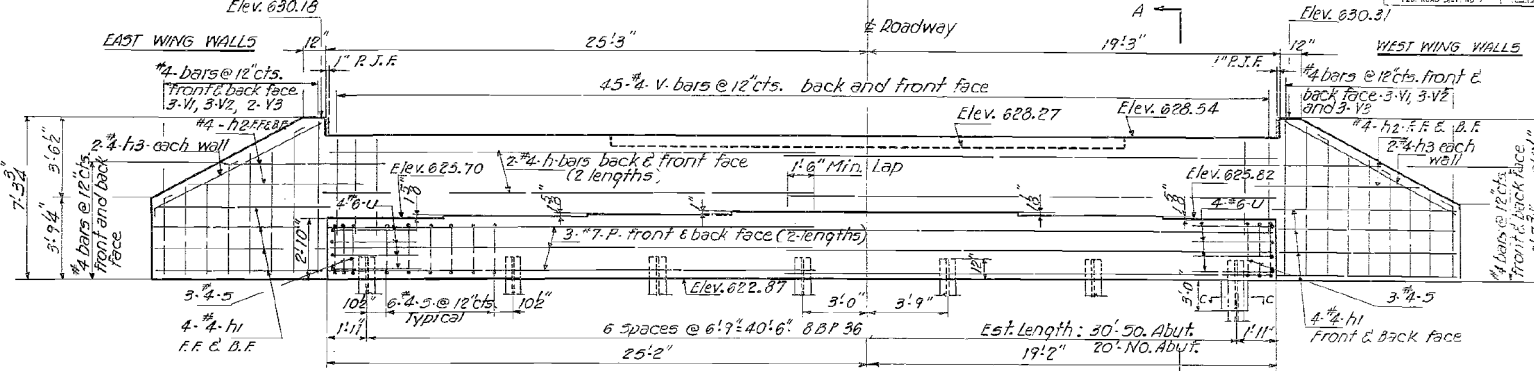 Elev. 630.18
EAST WING WALLS
12"
25'-3"
℄ Roadway
19'-3"
A
Elev. 630.31
12"
WEST WING WALLS
1" P.J.F.
1" P.J.F.
#4-bars @ 12"cts.
front & back face
3-V1, 3-V2, 2-V3
45-#4-V-bars @ 12"cts. back and front face
#4 bars @ 12"cts. front &
back face-3-V1, 3-V2
and 3-V3
Elev. 628.27
Elev. 628.54
#4-h2-F.F.&B.F.
#4-h2-F.F. & B.F.
2-#4-h3-each wall
2-#4-h3 each
wall
7'-3 3/4"
3'-6 1/2"
3'-9 1/4"
#4 bars @ 12"cts.
front and back
face
Elev. 625.70
2-#4-h-bars back & front face
(2 lengths)
1'-6" Min. Lap
Elev. 625.82
4-#6-U
4-#6-U
1"
3-#7-P-front & back face (2-lengths)
2'-10"
12"
#4 bars @ 12"cts.
front & back face
Elev. 622.87
3-#4-S
3-#4-S
10½"
6-#4-S @ 12"cts.
Typical
10½"
3'-0"
3'-9"
3'-0"
C
C
4-#4-h1
F.F. & B.F.
4-#4-h1
Front & Back face
1'-11"
6 Spaces @ 6'-9"=40'-6" 8 BP 36
Est. Length: 30'-So. Abut.
20'-No. Abut.
1'-11"
25'-2"
19'-2"